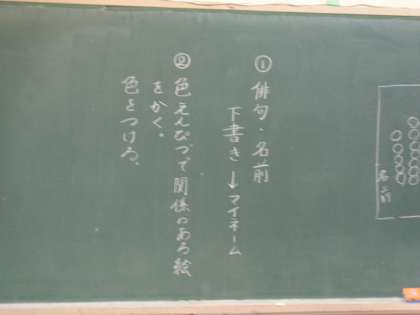 ① 俳句・名前
下書き→マイネーム
② 色えんぴつで関係のある絵
をかく。
色をつける。
名前